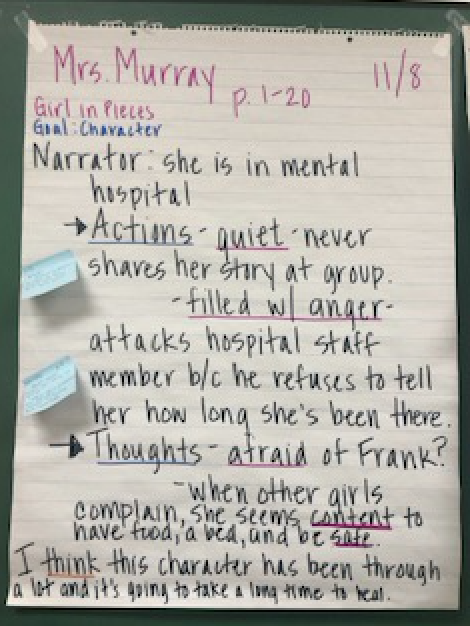 Mrs. Murray
p. 1-20
11/8
Girl in Pieces
Goal: Character
Narrator: she is in mental
hospital
→Actions- quiet - never
shares her story at group.
-filled w/ anger-
attacks hospital staff
member b/c he refuses to tell
her how long she's been there.
→Thoughts- afraid of Frank?
-when other girls
complain, she seems content to
have food, a bed, and be safe.
I think this character has been through
a lot and it's going to take a long time to heal.